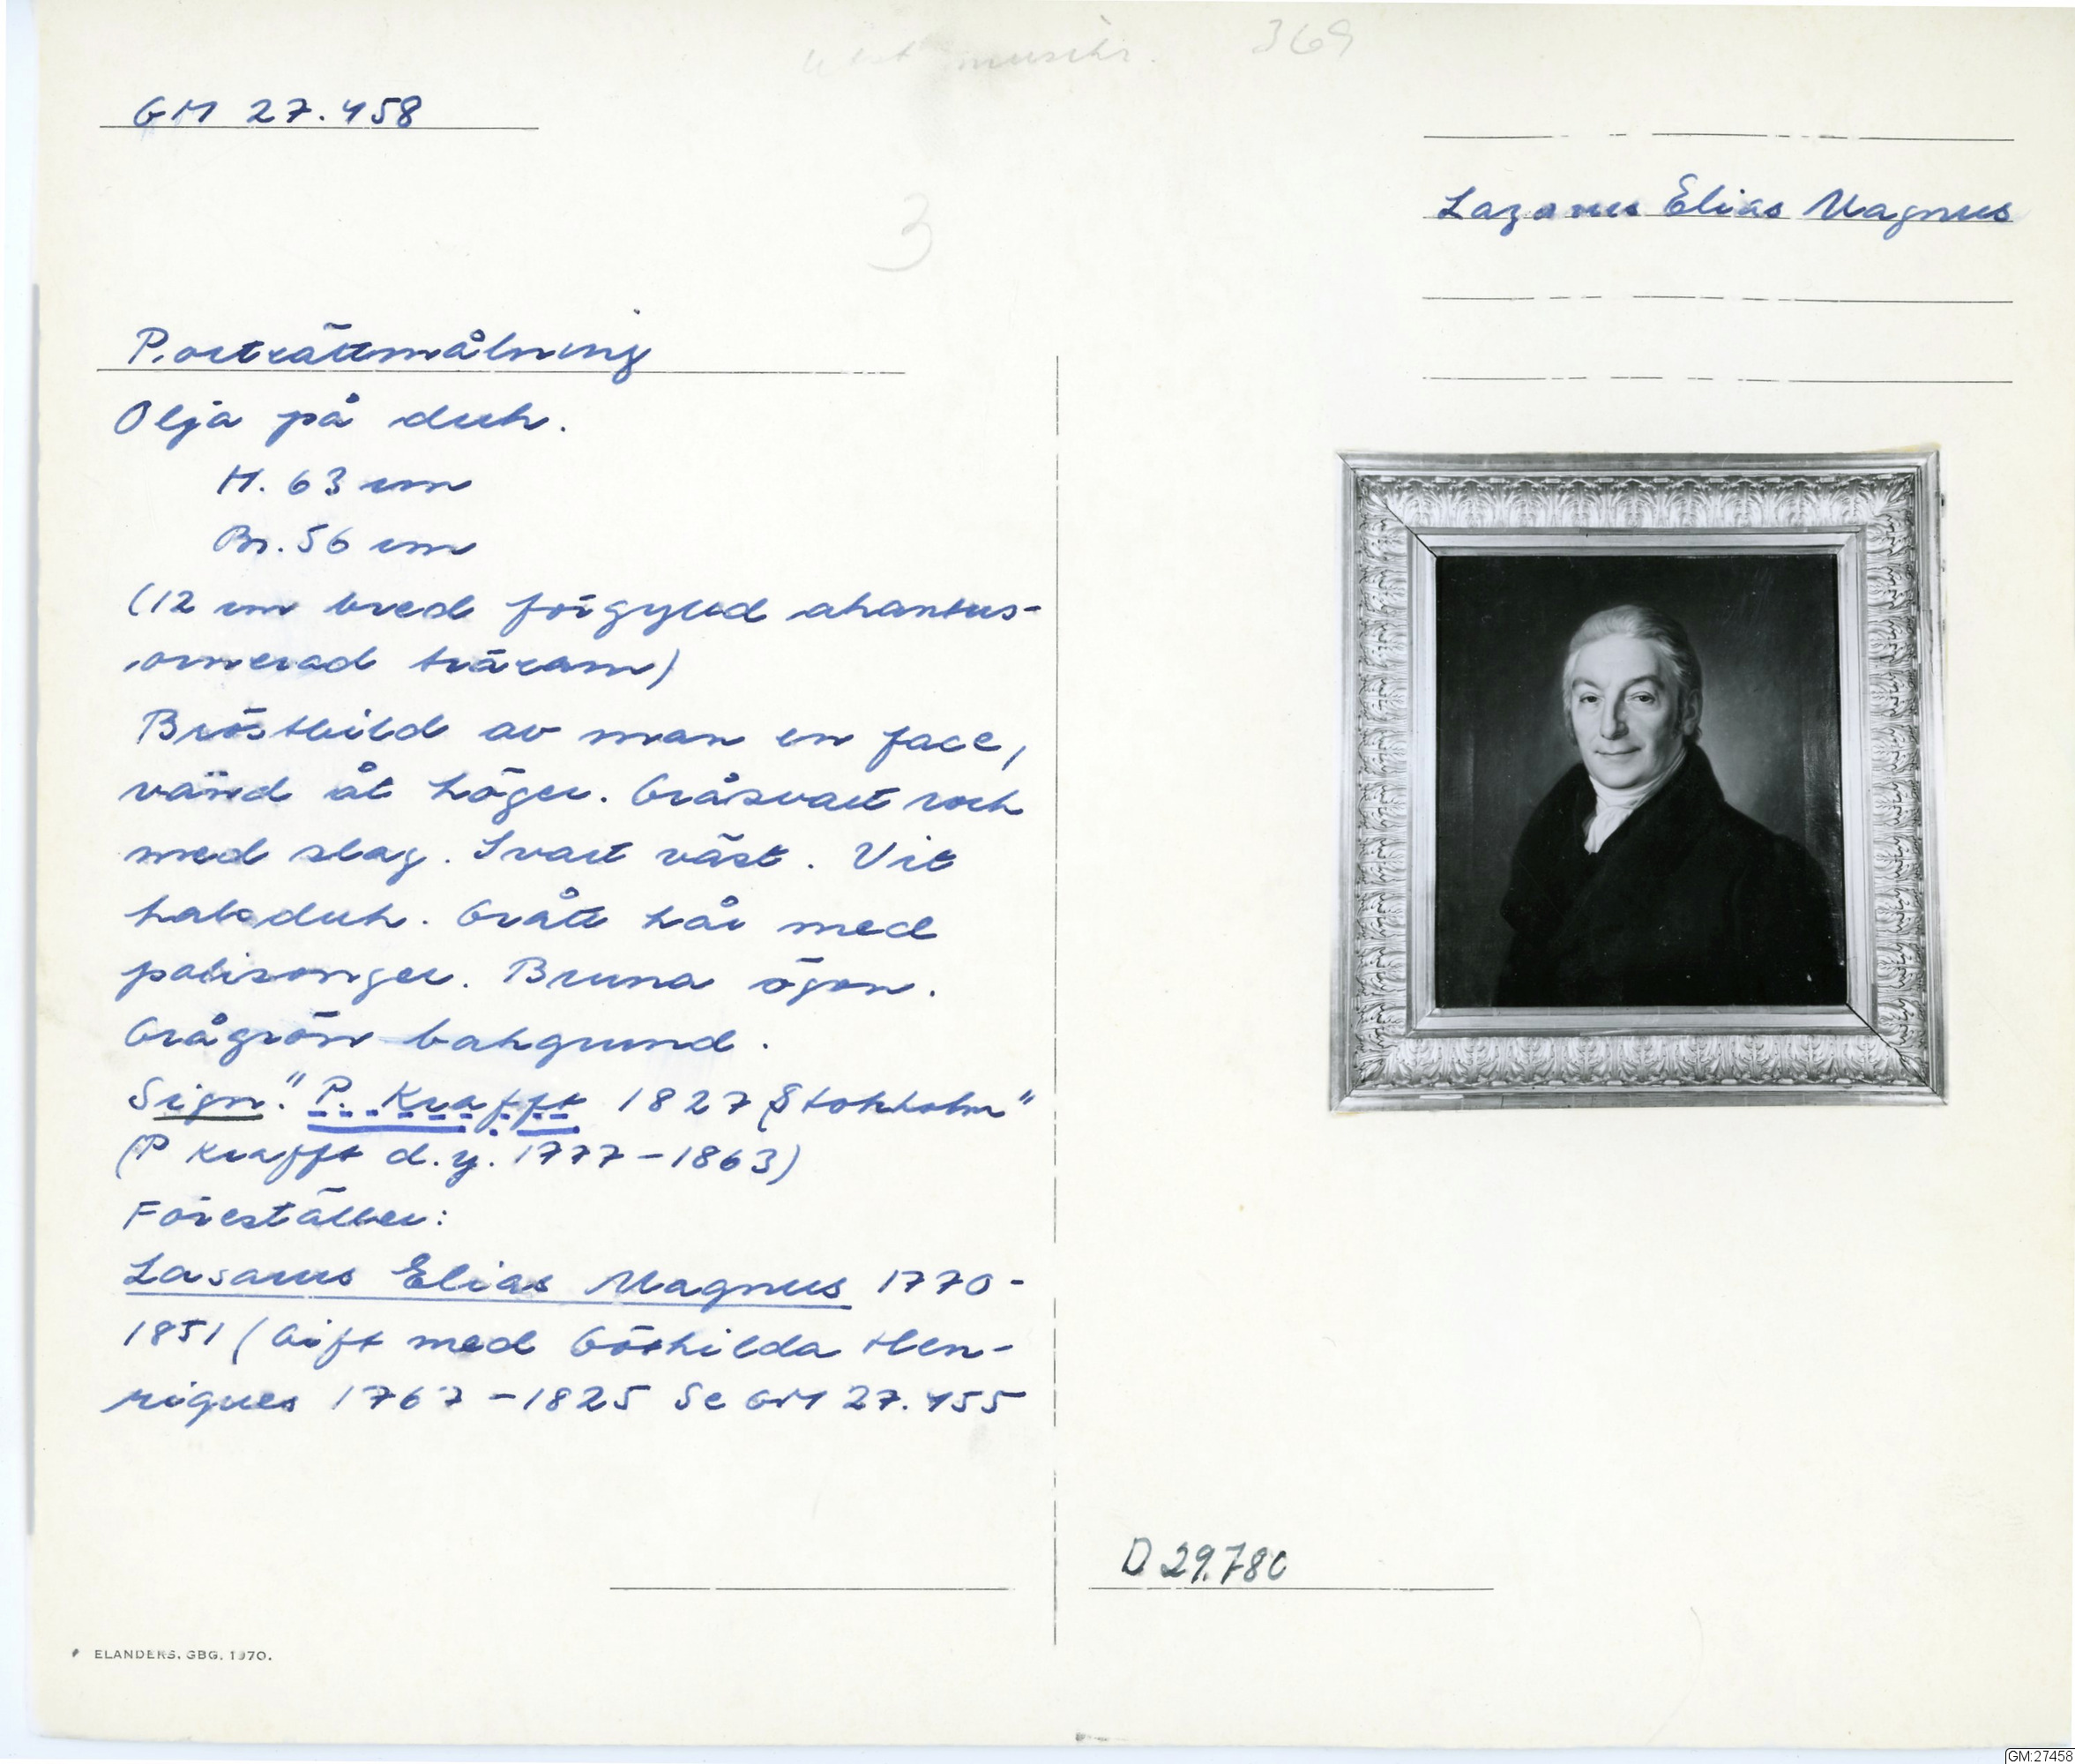 369
GM 27.458
Lazarus Elias Magnus
3
Porträttmålning
Olja på duk.
H. 63 cm
Br. 56 cm
(12 cm bred förgylld akantus-
ornerad träram)
Bröstbild av man en face,
vänd åt höger. Gråsvart rock
med slag. Svart väst. Vit
halsduk. Grått hår med
polisonger. Bruna ögon.
Grågrön bakgrund.
Sign. "P. Krafft 1827 Stokholm"
(P Krafft d.y. 1777-1863)
Föreställer:
Lasarus Elias Magnus 1770-
1851 (Gift med Göthilda Hen-
riques 1767-1825 Se GM 27.455
D 29.780
ELANDERS. GBG. 1970.
GM:27458